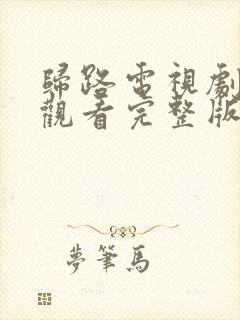 歸路電視劇
觀看完整版
夢筆馬